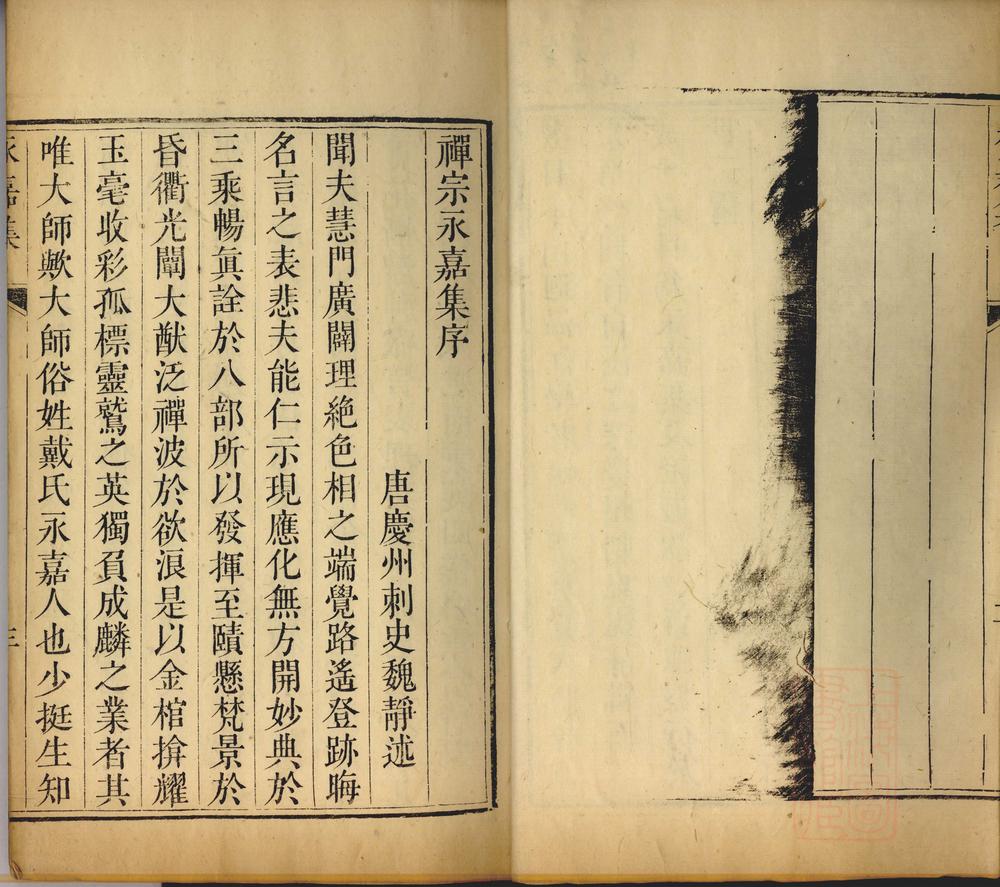 禪宗永嘉集序
唐慶州刺史魏靜述
聞夫慧門廣闢理絶色相之端覺路遙登跡晦
名言之表悲夫能仁示現應化無方開妙典於
三乘暢眞詮於八部所以發揮至賾懸梵景於
昏衢光闡大猷泛禪波於欲浪是以金棺揜耀
玉毫收彩孤標靈鷲之英獨負成麟之業者其
唯大師歟大師俗姓戴氏永嘉人也少挺生知
永嘉集
三